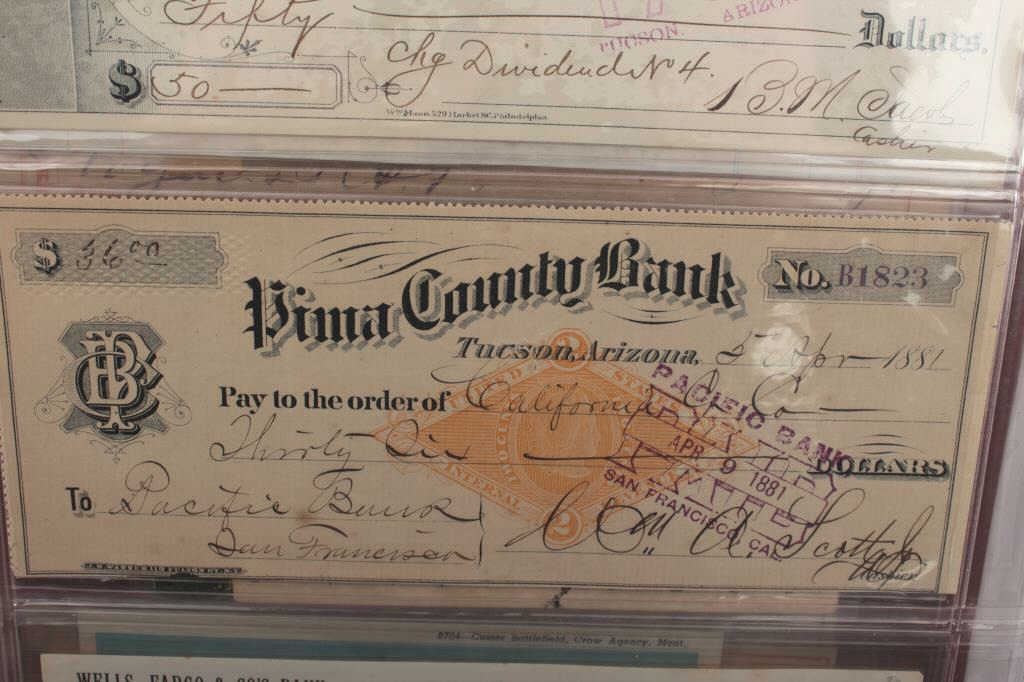 Fifty
Dollars.
TUCSON.
ARIZONA
$ 50
Chg Dividend No 4.
B.M. Jacobs
Cashier
Wm Mann 529 Market St. Philadelphia
$ 36 00
Pima County Bank
No. B1823
Tucson, Arizona, 5 Apr 1881
Pay to the order of California
Co
Thirty Six
DOLLARS
UNITED STATES
INTERNAL
2
2
PACIFIC BANK
PAID
APR 9 1881
SAN FRANCISCO, CAL
To Pacific Bank
San Francisco
Scott Jr
Cashier
PCB
8704. Custer Battlefield, Crow Agency, Mont.
WELLS FARGO & CO'S BANK